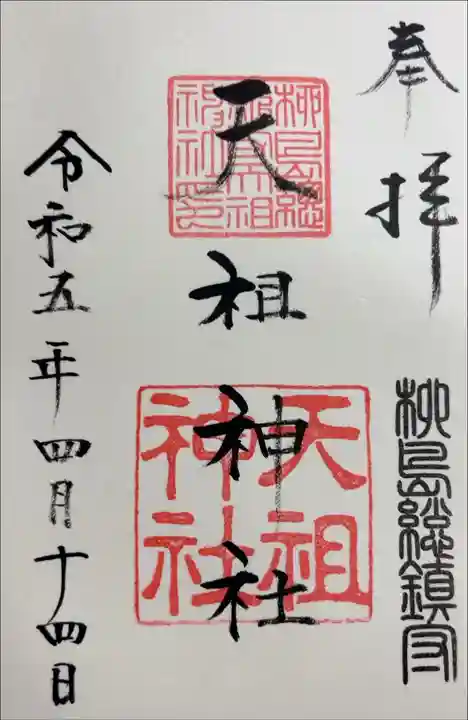 奉拝
柳島総鎮守
天祖神社
天祖神社
柳島総鎮守天祖神社之印
令和五年四月十四日